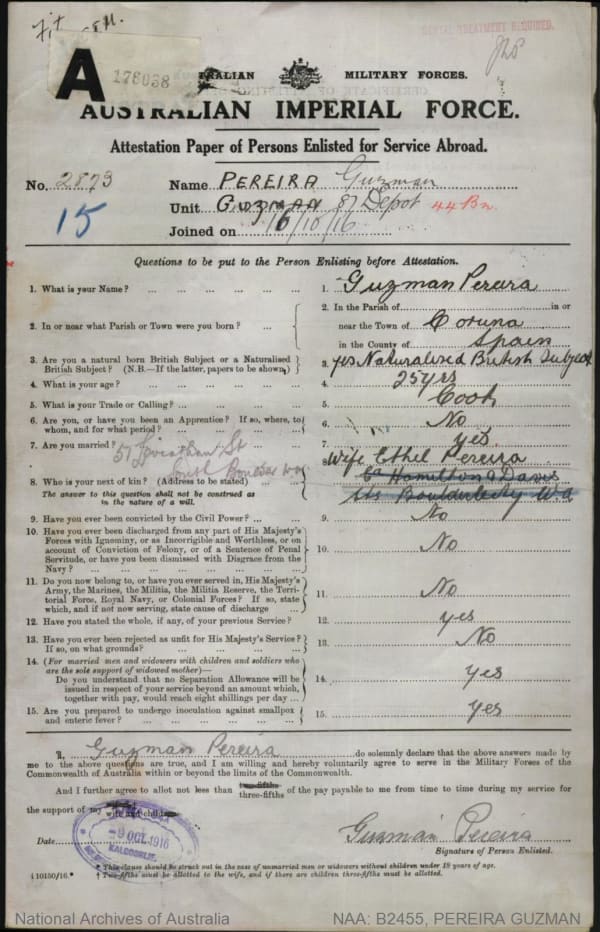 Fit
DENTAL TREATMENT REQUIRED.
A 178038
AUSTRALIAN MILITARY FORCES.
AUSTRALIAN IMPERIAL FORCE.
Attestation Paper of Persons Enlisted for Service Abroad.
No. 2873 Name PEREIRA Guzman
15 Unit Guzman 87 Depot 44 Bn
Joined on 16/10/16
Questions to be put to the Person Enlisting before Attestation.
1. What is your Name? ... 1. Guzman Pereira
2. In or near what Parish or Town were you born? ... 2. In the Parish of in or
near the Town of Coruna
in the County of Spain
3. Are you a natural born British Subject or a Naturalised
British Subject? (N.B.—If the latter, papers to be shown) 3. yes Naturalised British Subject
4. What is your age? ... 4. 25 yrs
5. What is your Trade or Calling? ... 5. Cook
6. Are you, or have you been an Apprentice? If so, where, to
whom, and for what period? ... 6. No
7. Are you married? ... 7. yes
57 Leviathan St
South Boulder W.A.
8. Who is your next of kin? (Address to be stated) ... 8. Wife Ethel Pereira
Co Hamilton & Davis
The answer to this question shall not be construed as
in the nature of a will.
Boulder City W.A
9. Have you ever been convicted by the Civil Power? ... 9. No
10. Have you ever been discharged from any part of His Majesty's
Forces with Ignominy, or as Incorrigible and Worthless, or on
account of Conviction of Felony, or of a Sentence of Penal
Servitude, or have you been dismissed with Disgrace from the
Navy? ... 10. No
11. Do you now belong to, or have you ever served in, His Majesty's
Army, the Marines, the Militia, the Militia Reserve, the Terri-
torial Force, Royal Navy, or Colonial Forces? If so, state
which, and if not now serving, state cause of discharge ... 11. No
12. Have you stated the whole, if any, of your previous Service? 12. yes
13. Have you ever been rejected as unfit for His Majesty's Service?
If so, on what grounds? ... 13. No
14. (For married men and widowers with children and soldiers who
are the sole support of widowed mother)—
Do you understand that no Separation Allowance will be
issued in respect of your service beyond an amount which,
together with pay, would reach eight shillings per day ... 14. Yes
15. Are you prepared to undergo inoculation against smallpox
and enteric fever? ... 15. yes
I, Guzman Pereira do solemnly declare that the above answers made by
me to the above questions are true, and I am willing and hereby voluntarily agree to serve in the Military Forces of the
Commonwealth of Australia within or beyond the limits of the Commonwealth.
And I further agree to allot not less than two-fifths three-fifths of the pay payable to me from time to time during my service for
the support of my wife and children
Date 9 OCT 1916 KALGOORLIE. Guzman Pereira
Signature of Person Enlisted.
* This clause should be struck out in the case of unmarried men or widowers without children under 18 years of age.
† Two-fifths must be allotted to the wife, and if there are children three-fifths must be allotted.
‡ 10150/16.*
National Archives of Australia NAA: B2455, PEREIRA GUZMAN